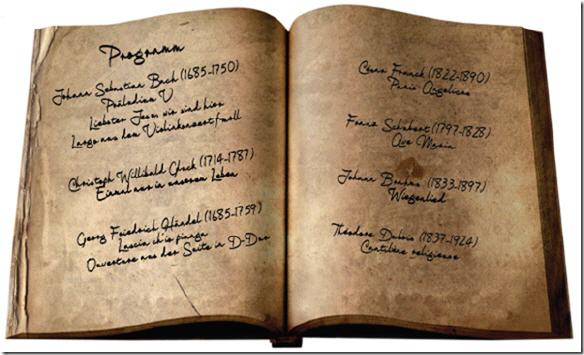 Programm
Johann Sebastian Bach (1685-1750)
Präludium V
Liebster Jesu wir sind hier
Largo aus dem Violinkonzert f-moll
Christoph Willibald Gluck (1714-1787)
Einmal nur in unserem Leben
Georg Friedrich Händel (1685-1759)
Lascia ch'io pianga
Ouverture aus der Suite in D-Dur
César Franck (1822-1890)
Panis Angelicus
Franz Schubert (1797-1828)
Ave Maria
Johann Brahms (1833-1897)
Wiegenlied
Théodore Dubois (1837-1924)
Cantilène religieuse